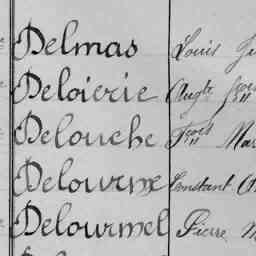 Delmas Louis
Deloierie Aug^te fçois
Delouche fçois Mar
Delourme Constant
Delourmel Pierre M